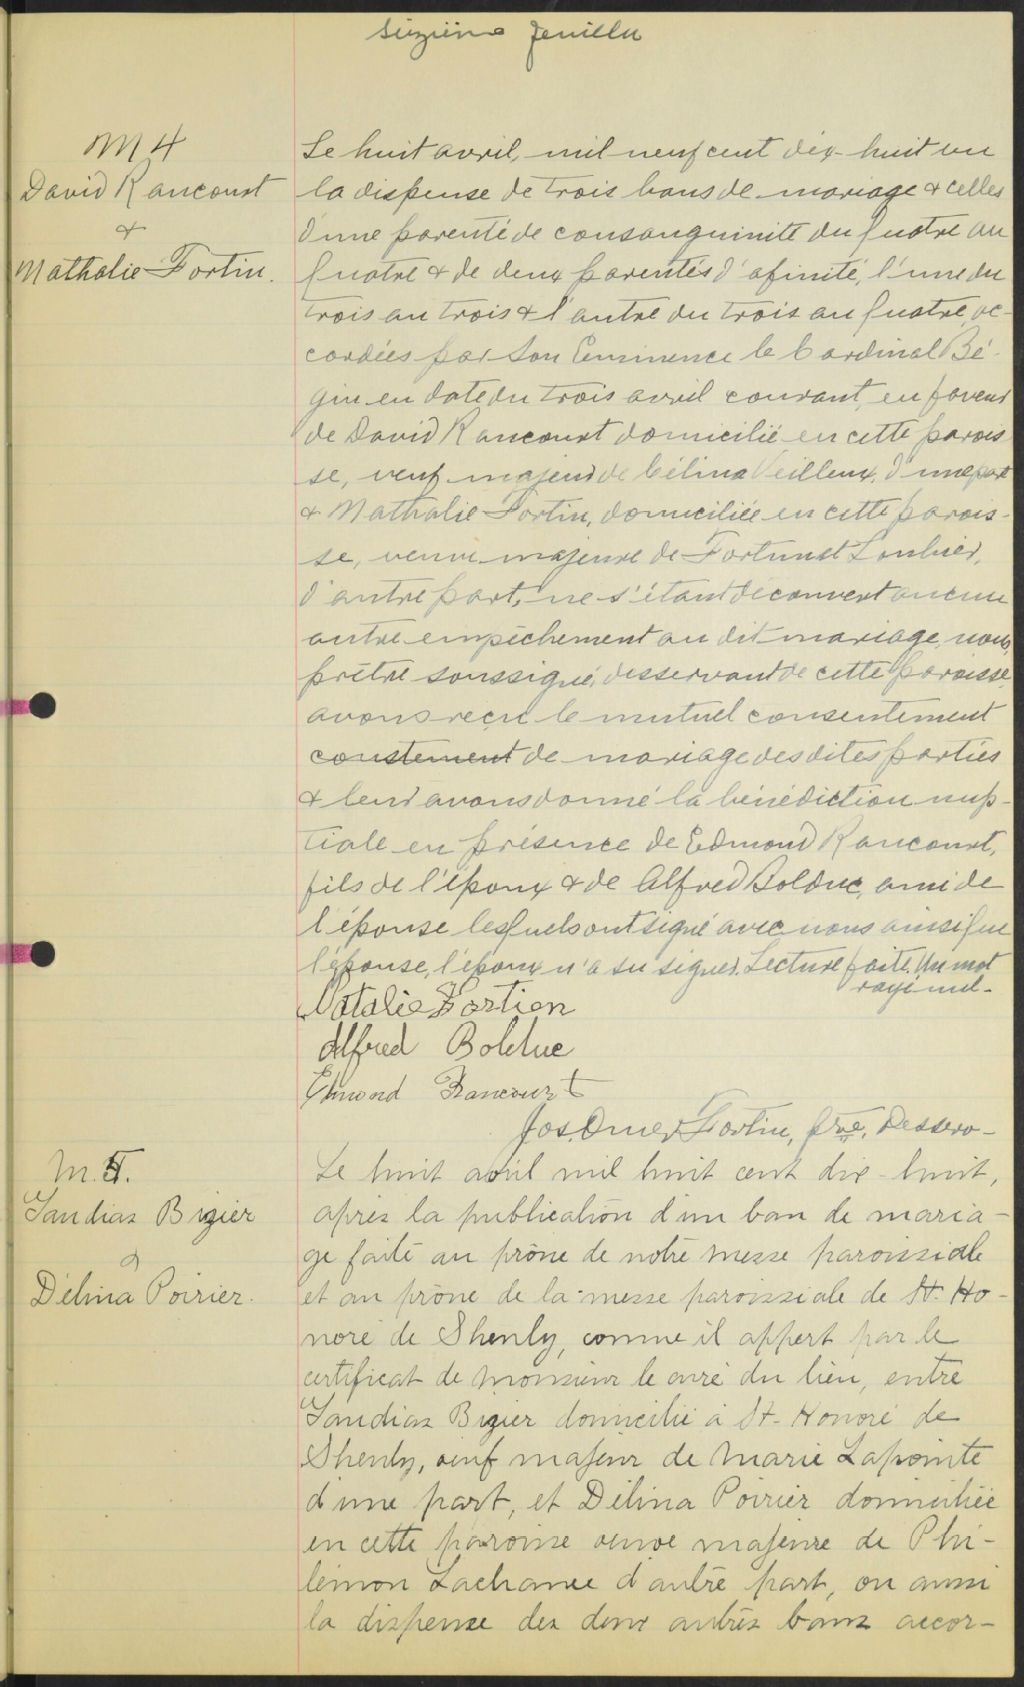 Sixième feuillet
M 4
David Rancourt
&
Nathalie Fortin.
Le huit avril, mil neuf cent dix-huit vu
la dispense de trois bans de mariage & celles
d'une parenté de consanguinité du quatre au
quatre & de deux parentés d'afinité, l'une du
trois au trois & l'autre du trois au quatre, ac-
cordées par Son Eminence le Cardinal Bé-
gin en date du trois avril courant, en faveur
de David Rancourt domicilié en cette parois-
se, veuf majeur de Célina Veilleux, d'une part
& Nathalie Fortin, domiciliée en cette parois-
se, veuve majeure de Fortunat Loubier,
d'autre part, ne s'étant découvert aucun
autre empêchement au dit mariage, nous,
prêtre soussigné, desservant de cette paroisse,
avons reçu le mutuel consentement
de mariage des dites parties
& leur avons donné la bénédiction nup-
tiale en présence de Edmond Rancourt,
fils de l'époux & de Alfred Bolduc, ami de
l'épouse lesquels ont signé avec nous ainsi que
l'épouse, l'époux n'a su signer. Lecture faite. Un mot
rayé nul-
Natalie Fortien
Alfred Bolduc
Edmond Rancourt
Jos. Omer Fortin, ptre, Desserv-
M. 5.
Gaudias Bizier
&
Délina Poirier.
Le huit avril mil huit cent dix-huit,
après la publication d'un ban de maria-
ge faite au prône de notre messe paroissiale
et au prône de la messe paroissiale de St. Ho-
noré de Shenly, comme il appert par le
certificat de monsieur le curé du lieu, entre
Gaudias Bizier domicilié à St-Honoré de
Shenly, veuf majeur de Marie Lapointe
d'une part, et Délina Poirier domiciliée
en cette paroisse veuve majeure de Phi-
lémon Lachance d'autre part, vu aussi
la dispense des deux autres bans accor-